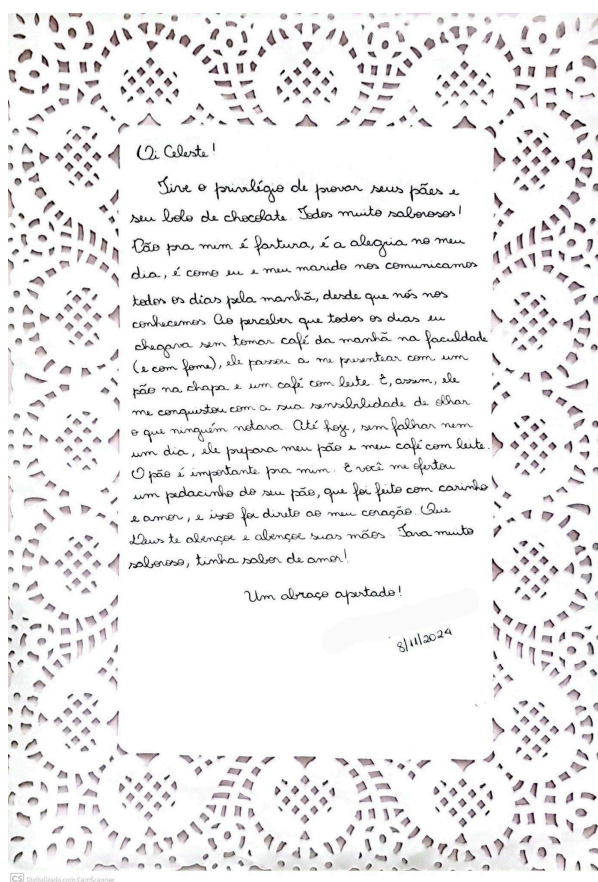 Oi Celeste!
Tive o privilégio de provar seus pães e
seu bolo de chocolate. Todos muito saborosos!
Pão pra mim é fartura, é a alegria no meu
dia, é como eu e meu marido nos comunicamos
todos os dias pela manhã, desde que nós nos
conhecemos. Ao perceber que todos os dias eu
chegava sem tomar café da manhã na faculdade
(e com fome), ele passou a me presentear com um
pão na chapa e um café com leite. E, assim, ele
me conquistou com a sua sensibilidade de olhar
o que ninguém notava. Até hoje, sem falhar nem
um dia, ele prepara meu pão e meu café com leite.
O pão é importante pra mim. E você me ofertou
um pedacinho do seu pão, que foi feito com carinho
e amor, e isso foi direto ao meu coração. Que
Deus te abençoe e abençoe suas mãos. Tava muito
saboroso, tinha sabor de amor!
Um abraço apertado!
8/11/2024
CS Digitalizado com CamScanner